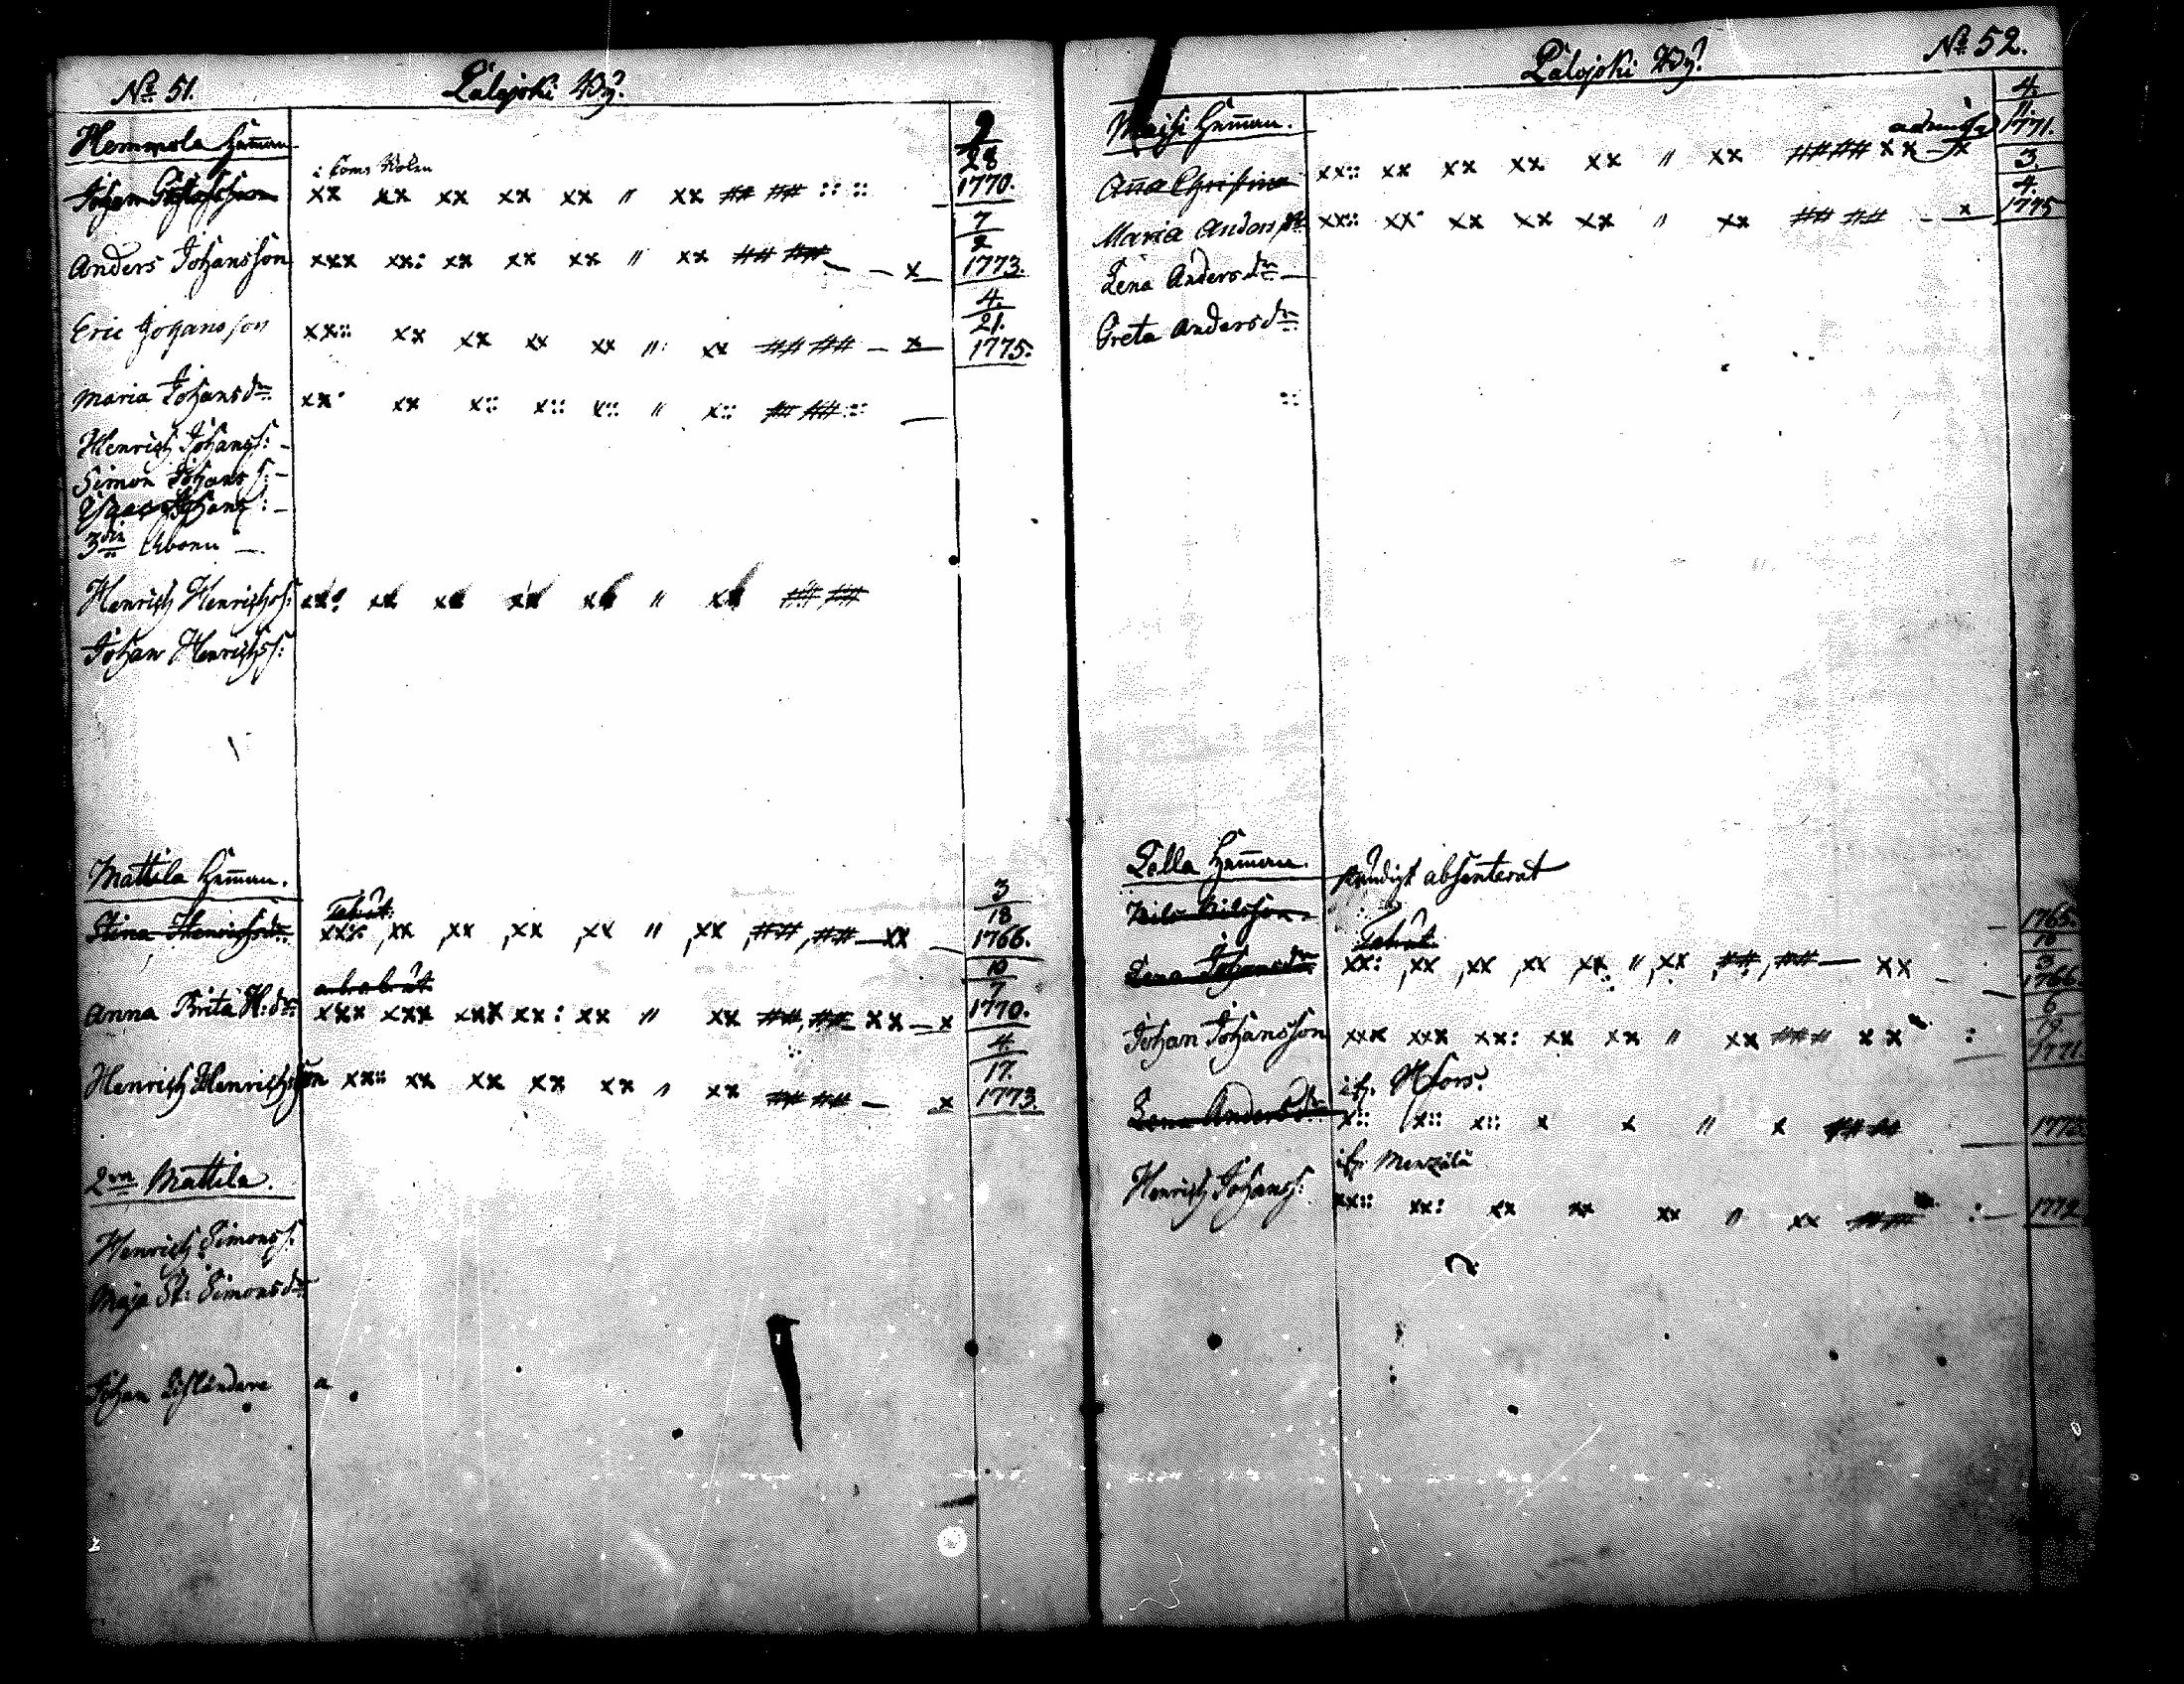 No 51.
Palojoki By.
Hemmola Hemman
i Coms Rolen
9
28
1770.
Johan Gustafsson
xx xx xx xx xx " xx ## ## :: ::
7
2
1773.
Anders Johansson
xxx xx: xx xx xx " xx ## ## — — x
4.
21.
1775.
Eric Johansson
xx:: xx xx xx xx " xx ## ## — x
Maria Johansdr
xx: xx x:: x:: x:: " x:: ## ## ::
Henrich Johanss: —
Simon Johans s: —
Johans: —
3die Åboen —
Henrich Henrichss:
xx: xx xx xx xx " xx ## ##
Johan Henrichss:
Mattila Hemman.
3
18
1766.
Stina Henrichsdr
xx:: xx xx xx xx " xx ## ## — xx
10
7
1770.
Anna Brita H:dr
xxx xxx xxx xx: xx " xx ## ## xx — x
4.
17.
1773.
Henrich Henrichsson
xx:: xx xx xx xx " xx ## ## — x
2dra Mattila.
Henrich Simonss:
Maja St: Simonsdr
Johan a
No 52.
Palojoki By.
Hemman.
4.
11.
1771.
Anna Christina
xx:: xx xx xx xx " xx ## ## xx — x
3.
4.
1775
Maria Andersdr
xx:: xx: xx xx xx " xx ## ## — x
Lena Andersdr —
Greta Andersdr
::
Lölla Hemman.
ständigt absenterat
Nils Nilsson
1765.
Lena Johansdr
xx: xx xx xx xx " xx ## ## — xx
1766.
Johan Johansson
xxx xxx xx: xx xx " xx ### xx :
6
19
1771.
Lena Andersdr
ifr. Hfors.
x:: x:: x:: x x " x ## ##
1775.
Henrich Johanss:
ifr Menzälä
xx:: xx: xx xx xx " xx ## :—
1772